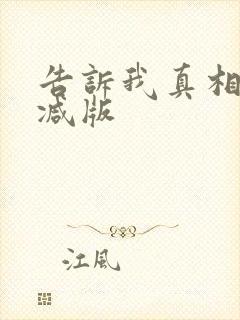 告訴我真相
减版
江風